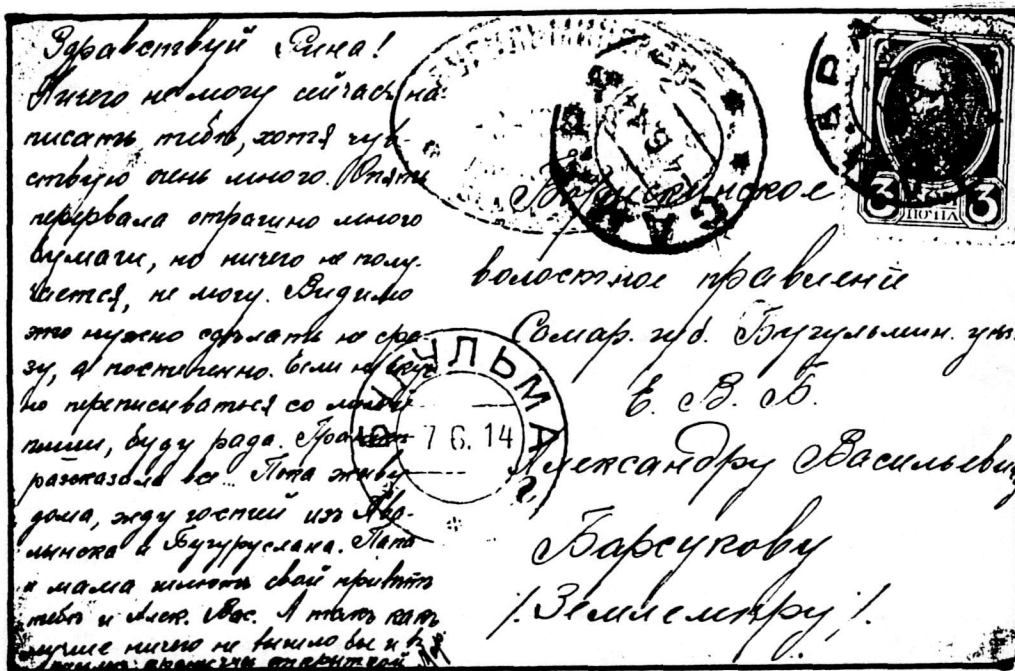 Здравствуй Сима!
Ничего не могу сейчасъ на-
писать тебѣ, хотя чув-
ствую очень много. Опять
перервала отрашно много
бумаги, но ничего не полу-
чается, не могу. Видимо
это нужно сдѣлать не сра-
зу, а постепенно. Если не
но переписываться со мной
пиши, буду рада.
разсказала все. Пока живу
дома, жду гостей изъ
и Бугуруслана. Папа
и мама шлютъ свой привѣтъ
тебѣ и Алек. Вас. А такъ какъ
лучше ничего не вышло бы и
открыткой
волостное правление
Самар. губ. Бугульмин. уѣз.
Е. В. Б.
Александру Васильевичу
Барсукову
/Землемѣру/.
БУГУЛЬМА
7 6. 14
САМАР
3 3
ПОЧТА